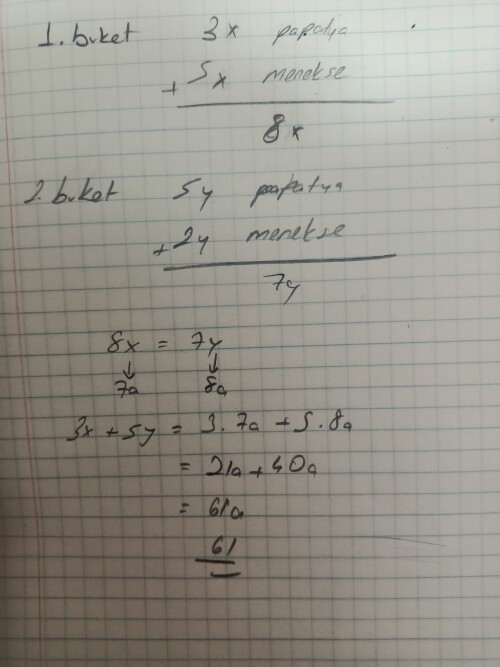 1. buket 3x papatya
+ 5x menekse
8x
2. buket 5y papatya
+ 2y menekse
7y
8x = 7y
↓ ↓
7a 8a
3x + 5y = 3.7a + 5.8a
= 21a + 40a
= 61a
61